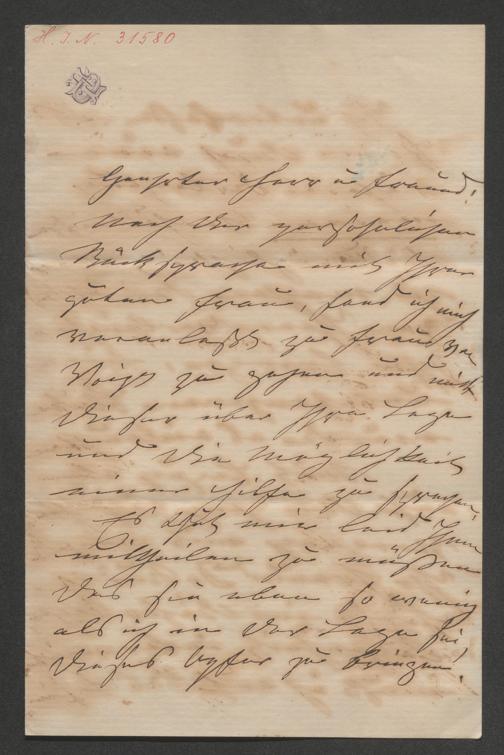 H. I. N. 31580
Geehrter Herr u Freund!
Nach der persöhnlichen
Rücksprache mit Ihrer
guten Frau, fand ich mich
veranlasst zu Frau von
Voigt zu gehen und mit
dieser über Ihre Lage
und die Möglichkeit
einer Hilfe zu sprechen.
Es thut mir leid Ihnen
mittheilen zu müßen
das sie eben so wenig
als ich in der Lage sei
dieses Opfer zu bringen!